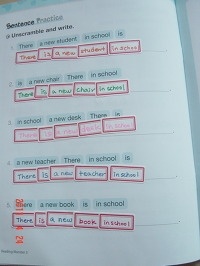 Sentence Practice
Unscramble and write.
1. There a new student in school is
There is a new student in school
2. is a new chair There in school
There is a new chair in school
3. in school a new desk There is
There is a new desk in school
4. a new teacher There in school is
There is a new teacher in school
5. There a new book is in school
There is a new book in school